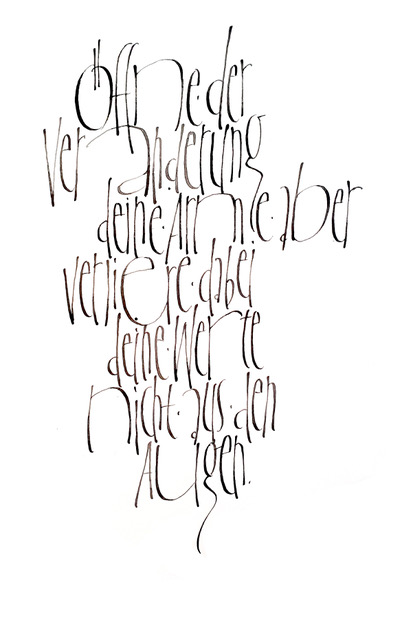 Öffne der
Veränderung
deine Arme aber
verliere dabei
deine Werte
nicht aus den
Augen.